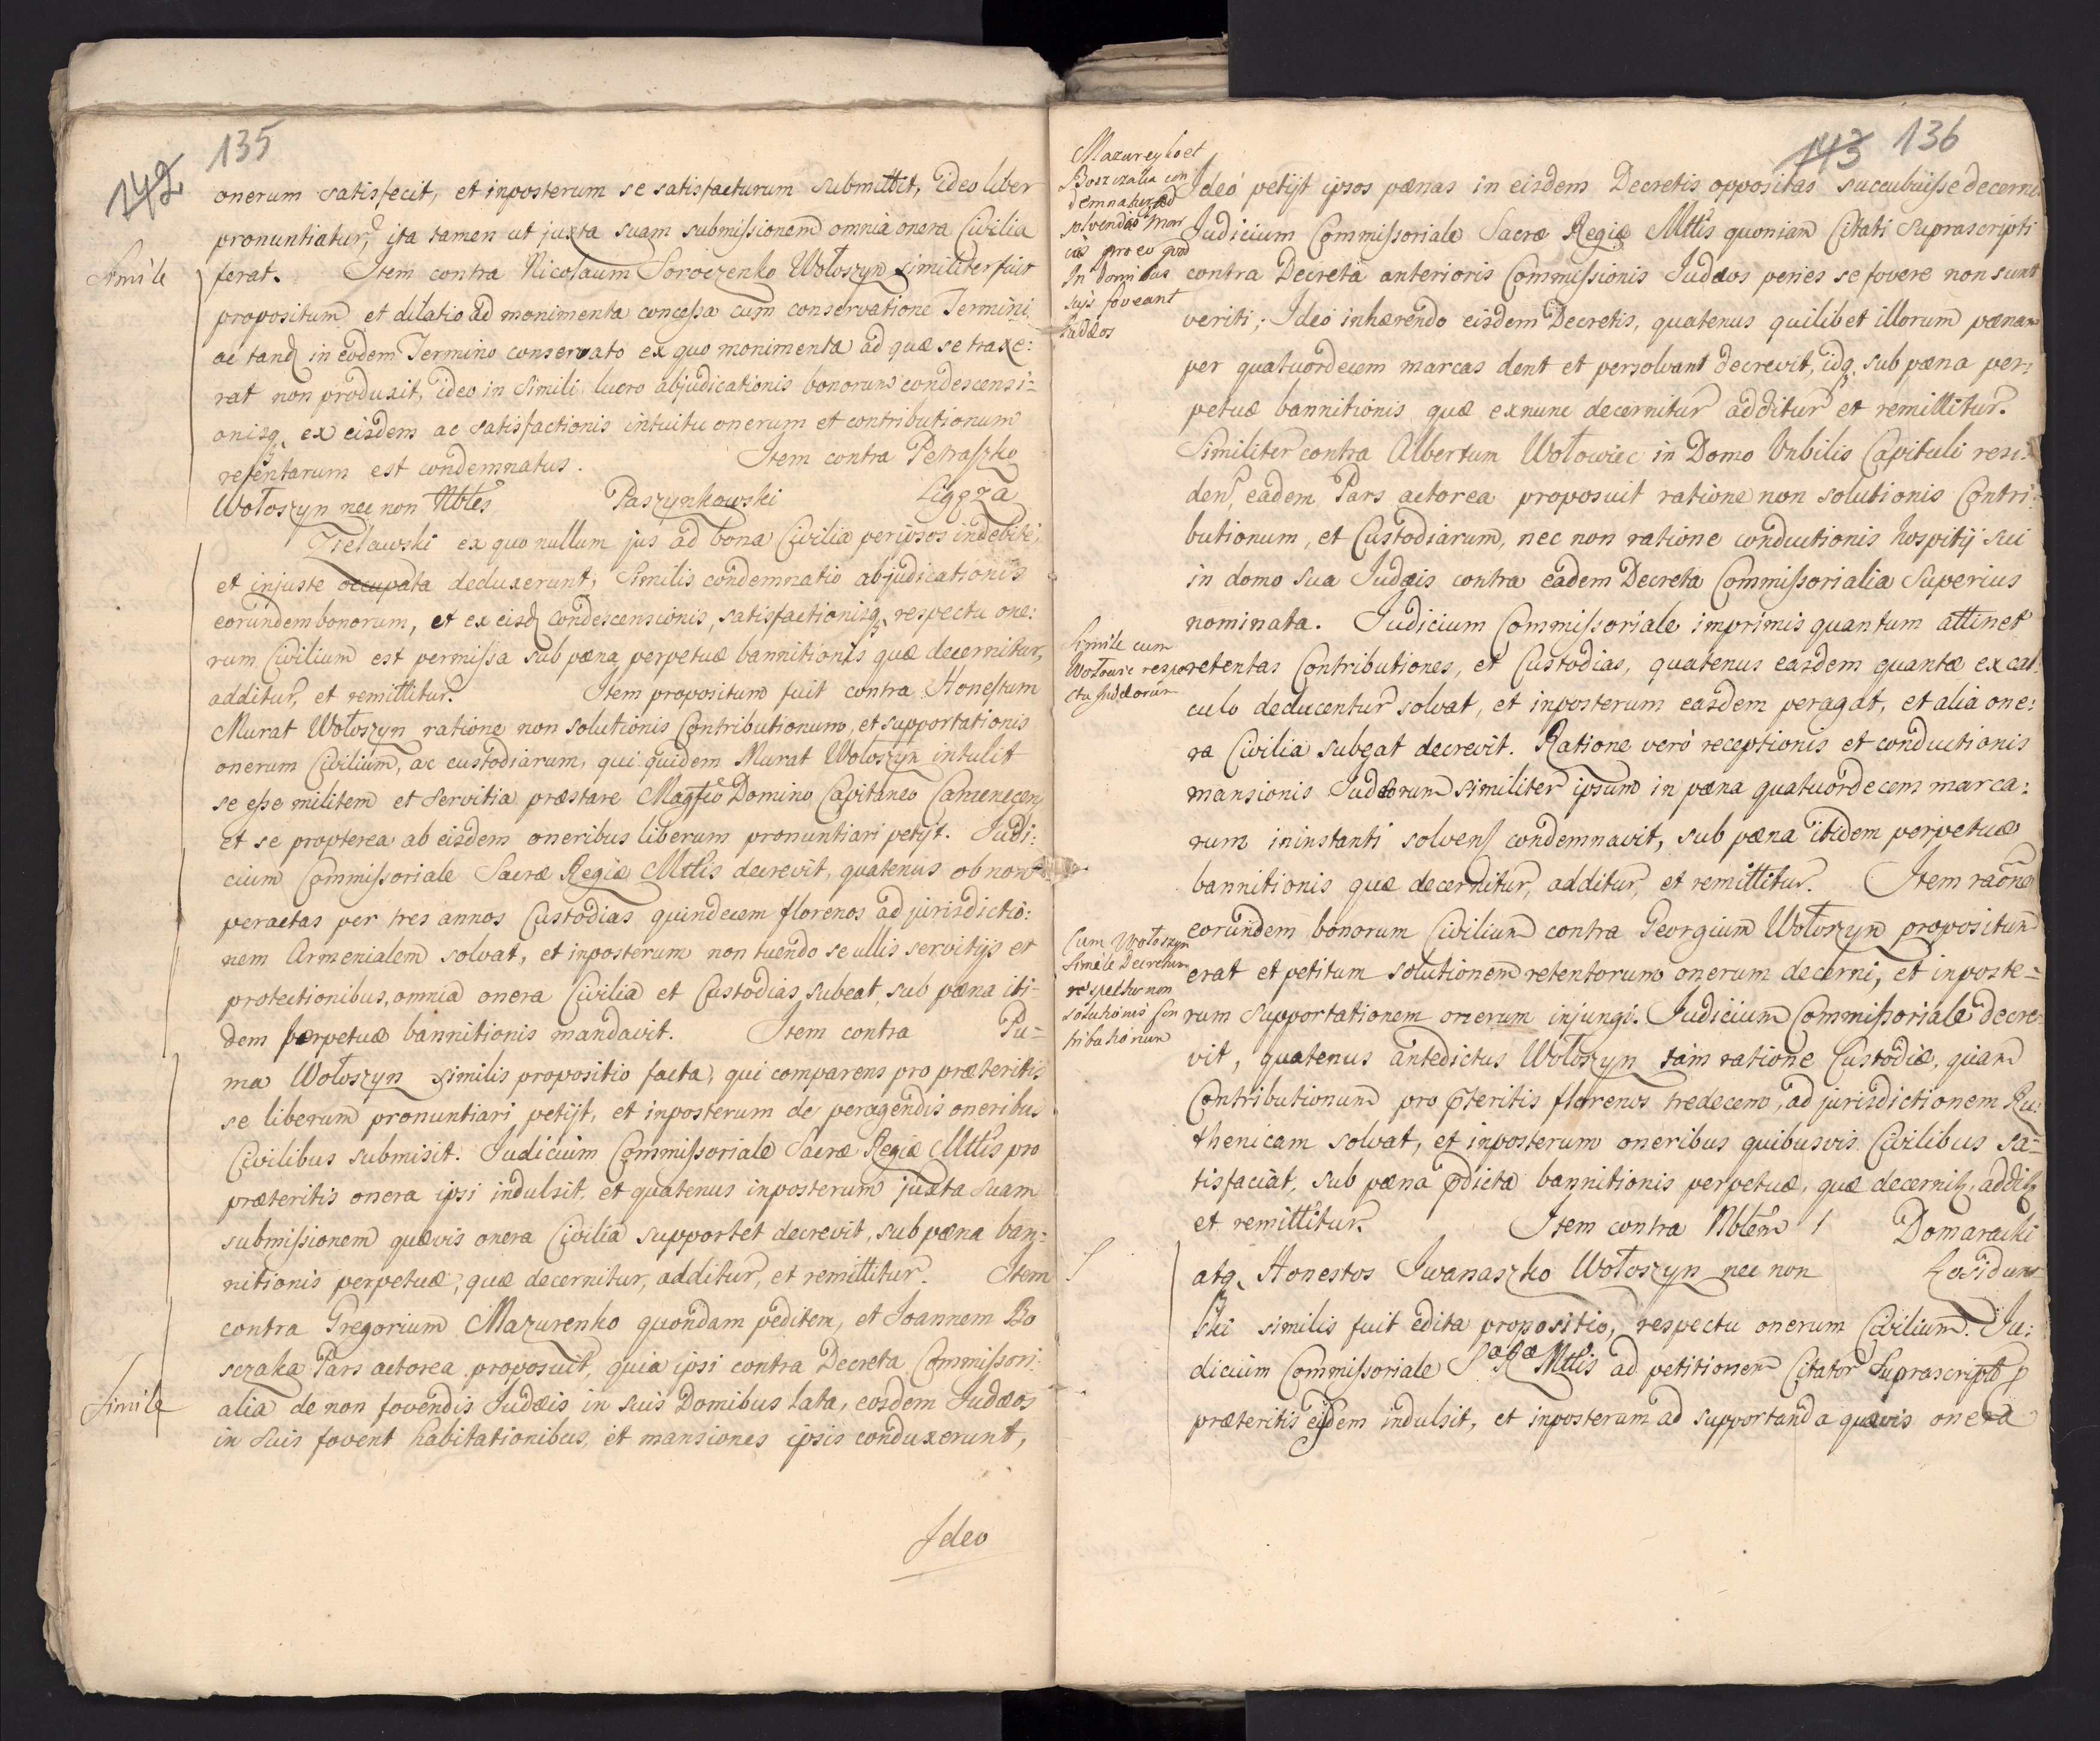 135
142
onerum satisfecit, et inposterum se satisfacturum submittit, ideo liber
pronuntiatur, ita tamen ut juxta suam submissionem omnia onera Civilia
Simile
ferat. Item contra Nicolaum Soroczenko Wołoszyn similiter fuit
propositum et dilatio ad monimenta concessa cum conservatione Termini
ac tand in eodem Termino conservato ex quo monimenta ad quæ se traxe:
rat non produxit, ideo in simili lucro abjudicationis bonorum condescensi=
onisq, ex eisdem ac satisfactionis intuitu onerum et contributionum
retentarum est condemnatus. Item contra Petraszko
Wołoszyn nec non Nbles Paszynkowski Ligęza
Zielawski ex quo nullum jus ad bona Civilia per ipsos indebite,
et injuste occupata deduxerunt, Similis condemnatio abjudicationis
eorundem bonorum, et ex eisd condescensionis, satisfactionisq, respectu one:
rum Civilium est permissa sub pæna perpetuæ bannitionis quæ decernitur,
additur, et remittitur. Item propositum fuit contra Honestum
Murat Wołoszyn ratione non solutionis Contributionum, et supportationis
onerum Civilium, ac custodiarum, qui quidem Murat Wołoszyn intulit
se esse militem et servitia præstare Magfco Domino Capitaneo Camenecen
et se propterea ab eisdem oneribus liberum pronuntiari petijt. Judi:
cium Commissoriale Sacræ Regiæ Mttis decrevit, quatenus ob non
peractas per tres annos Custodias quindecem florenos ad jurisdictio:
nem Armenialem solvat, et inposterum non tuendo se ullis servitijs et
protectionibus, omnia onera Civilia et Custodias subeat, sub pæna iti=
dem perpetuæ bannitionis mandavit. Item contra Pu=
ma Wołoszyn similis propositio facta, qui comparens pro præteritis
se liberum pronuntiari petijt, et inposterum de peragendis oneribus
Civilibus submisit. Judicium Commissoriale Sacræ Regiæ Mttis pro
præteritis onera ipsi indulsit, et quatenus inposterum juxta suam
submissionem quævis onera Civilia supportet decrevit, sub pæna ban=
nitionis perpetuæ, quæ decernitur, additur, et remittitur. Item
contra Gregorium Mazurenko quondam peditem, et Joannem Bo
sczaka Pars actorea proposuit, quia ipsi contra Decreta Commissori:
Simile
alia de non fovendis Judæis in suis Domibus lata, eosdem Judæos
in suis fovent habitationibus, et mansiones ipsis conduxerunt,
Ideo
143 136
Mazureyko et
Boszczalia con
demnatur ad
solvendas mar
cas pro eo quod
In domibus
suis foveant
Judæos
Ideo petijt ipsos pænas in eisdem Decretis oppositas succubuisse decerni
Judicium Commissoriale Sacræ Regiæ Mttis quoniam Citati Suprascripti
contra Decreta anterioris Commissionis Judæos penes se fovere non sunt
veriti; Ideo inhærendo eisdem Decretis, quatenus quilibet illorum pænam
per quatuordecem marcas dent et persolvant decrevit, idq, sub pæna per:
petuæ bannitionis, quæ exnunc decernitur additur et remittitur.
Similiter contra Albertum Wołowiec in Domo Vnbilis Capituli resi:
den, eadem Pars actorea proposuit ratione non solutionis Contri:
butionum, et Custodiarum, nec non ratione conductionis hospitij sui
in domo sua Judæis contra eadem Decreta Commissorialia superius
nominata. Judicium Commissoriale imprimis quantum attinet
Simile cum
Wołowic respe
ctu Judæorum
retentas Contributiones, et Custodias, quatenus easdem quantæ ex cal
culo deducentur solvat, et inposterum easdem peragat, et alia one:
ra Civilia subeat decrevit. Ratione verò receptionis et conductionis
mansionis Judæorum similiter ipsum in pæna quatuordecem marca:
rum ininstanti solven condemnavit, sub pæna itidem perpetuæ
bannitionis quæ decernitur, additur, et remittitur. Item raõne
Cum Wołoszyn
simile Decretum
respectu non
solutionis Con
tributionum
eorundem bonorum Civilium contra Georgium Wołoszyn propositum
erat et petitum solutionem retentorum onerum decerni, et inposte=
rum supportationem onerum injungi. Judicium Commissoriale decre
vit, quatenus antedictus Wołoszyn tam ratione Custodiæ, quam
Contributionum pro pteritis florenos tredecem, ad jurisdictionem Ru:
thenicam solvat, et inposterum oneribus quibusvis Civilibus sa=
tisfaciat, sub pæna pdicta bannitionis perpetuæ, quæ decernit, addit
et remittitur. Item contra Nblem Domaracki
atq, Honestos Iwanaszko Wołoszyn nec non
ski similis fuit edita propositio, respectu onerum Civilium. Ju:
dicium Commissoriale Sæ Ræ Mttis ad petitionem Citator Suprascript p
præteritis eisdem indulsit, et inposterum ad supportanda quævis onera